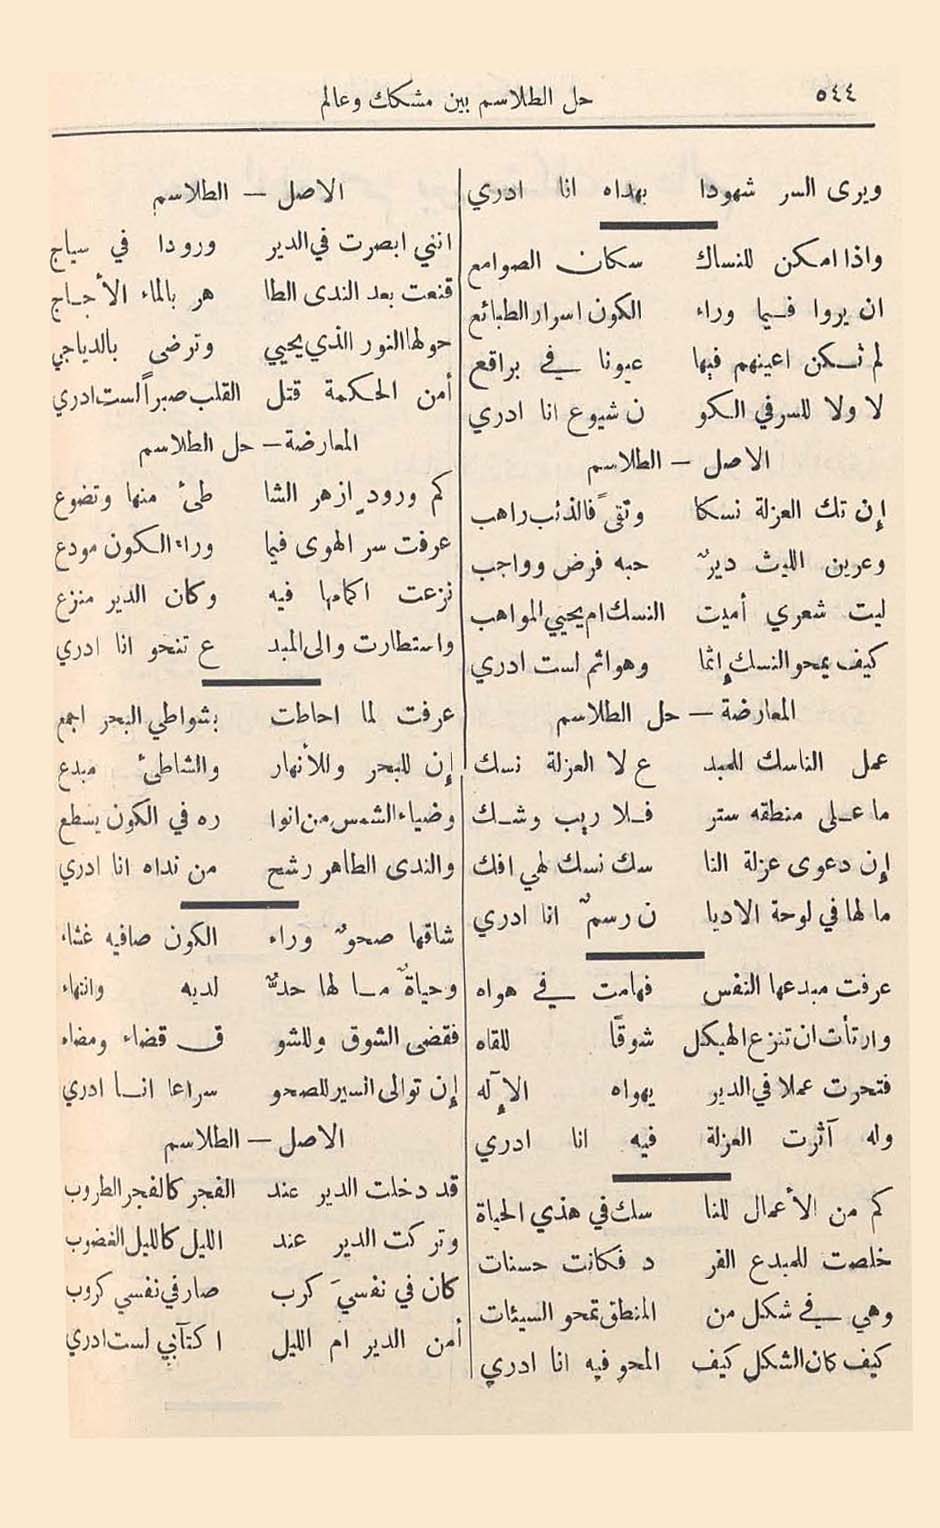 ٥٤٤
حل الطلاسم بين مشكك وعالم
ويرى السر شهودا بهداه انا ادري
واذا امكن للنساك سكان الصوامع
ان يروا فيما وراء الكون اسرار الطبائع
لم تكن اعينهم فيها عيونا في براقع
لا ولا للسر في الكو ن شيوع انا ادري
الاصل — الطلاسم
إن تك العزلة نسكا وتقىً فالذئب راهب
وعرين الليث ديرٌ حبه فرض وواجب
ليت شعري أميت النسك ام يحيي المواهب
كيف يمحو النسك إثما وهو اثم لست ادري
المعارضة — حل الطلاسم
عمل الناسك للمبد ع لا العزلة نسك
ما على منطقه ستر فلا ريب وشك
إن دعوى عزلة النا سك نسك لهي افك
ما لها في لوحة الاديا ن رسمٌ انا ادري
عرفت مبدعها النفس فهامت في هواه
وارتأت ان تنزع الهيكل شوقاً للقاه
فتحرت عملا في الدير يهواه الإله
وله آثرت العزلة فيه انا ادري
كم من الأعمال للنا سك في هذي الحياة
خلصت للمبدع الفر د فكانت حسنات
وهي في شكل من المنطق تمحو السيئات
كيف كان الشكل كيف المحو فيه انا ادري
الاصل — الطلاسم
انني ابصرت في الدير ورودا في سياج
قنعت بعد الندى الطا هر بالماء الأجاج
حولها النور الذي يحيي وترضى بالدياجي
أمن الحكمة قتل القلب صبراً لست ادري
المعارضة — حل الطلاسم
كم ورودٍ ازهر الشا طئ منها وتضوع
عرفت سر الهوى فيما وراء الكون مودع
نزعت اكمامها فيه وكان الدير منزع
واستطارت والى المبد ع تنحو انا ادري
عرفت لما احاطت بشواطي البحر اجمع
إن للبحر وللأنهار والشاطئ مبدع
وضياء الشمس من انوا ره في الكون يسطع
والندى الطاهر رشح من نداه انا ادري
شاقها صحوٌ وراء الكون صافيه غشاء
وحياةٌ ما لها حدٌ لديه وانتهاء
فقضى الشوق وللشو ق قضاء ومضاء
إن توالى السير للصحو سراعا انا ادري
الاصل — الطلاسم
قد دخلت الدير عند الفجر كالفجر الطروب
وتركت الدير عند الليل كالليل الغضوب
كان في نفسيَ كرب صار في نفسي كروب
أمن الدير ام الليل اكتآبي لست ادري